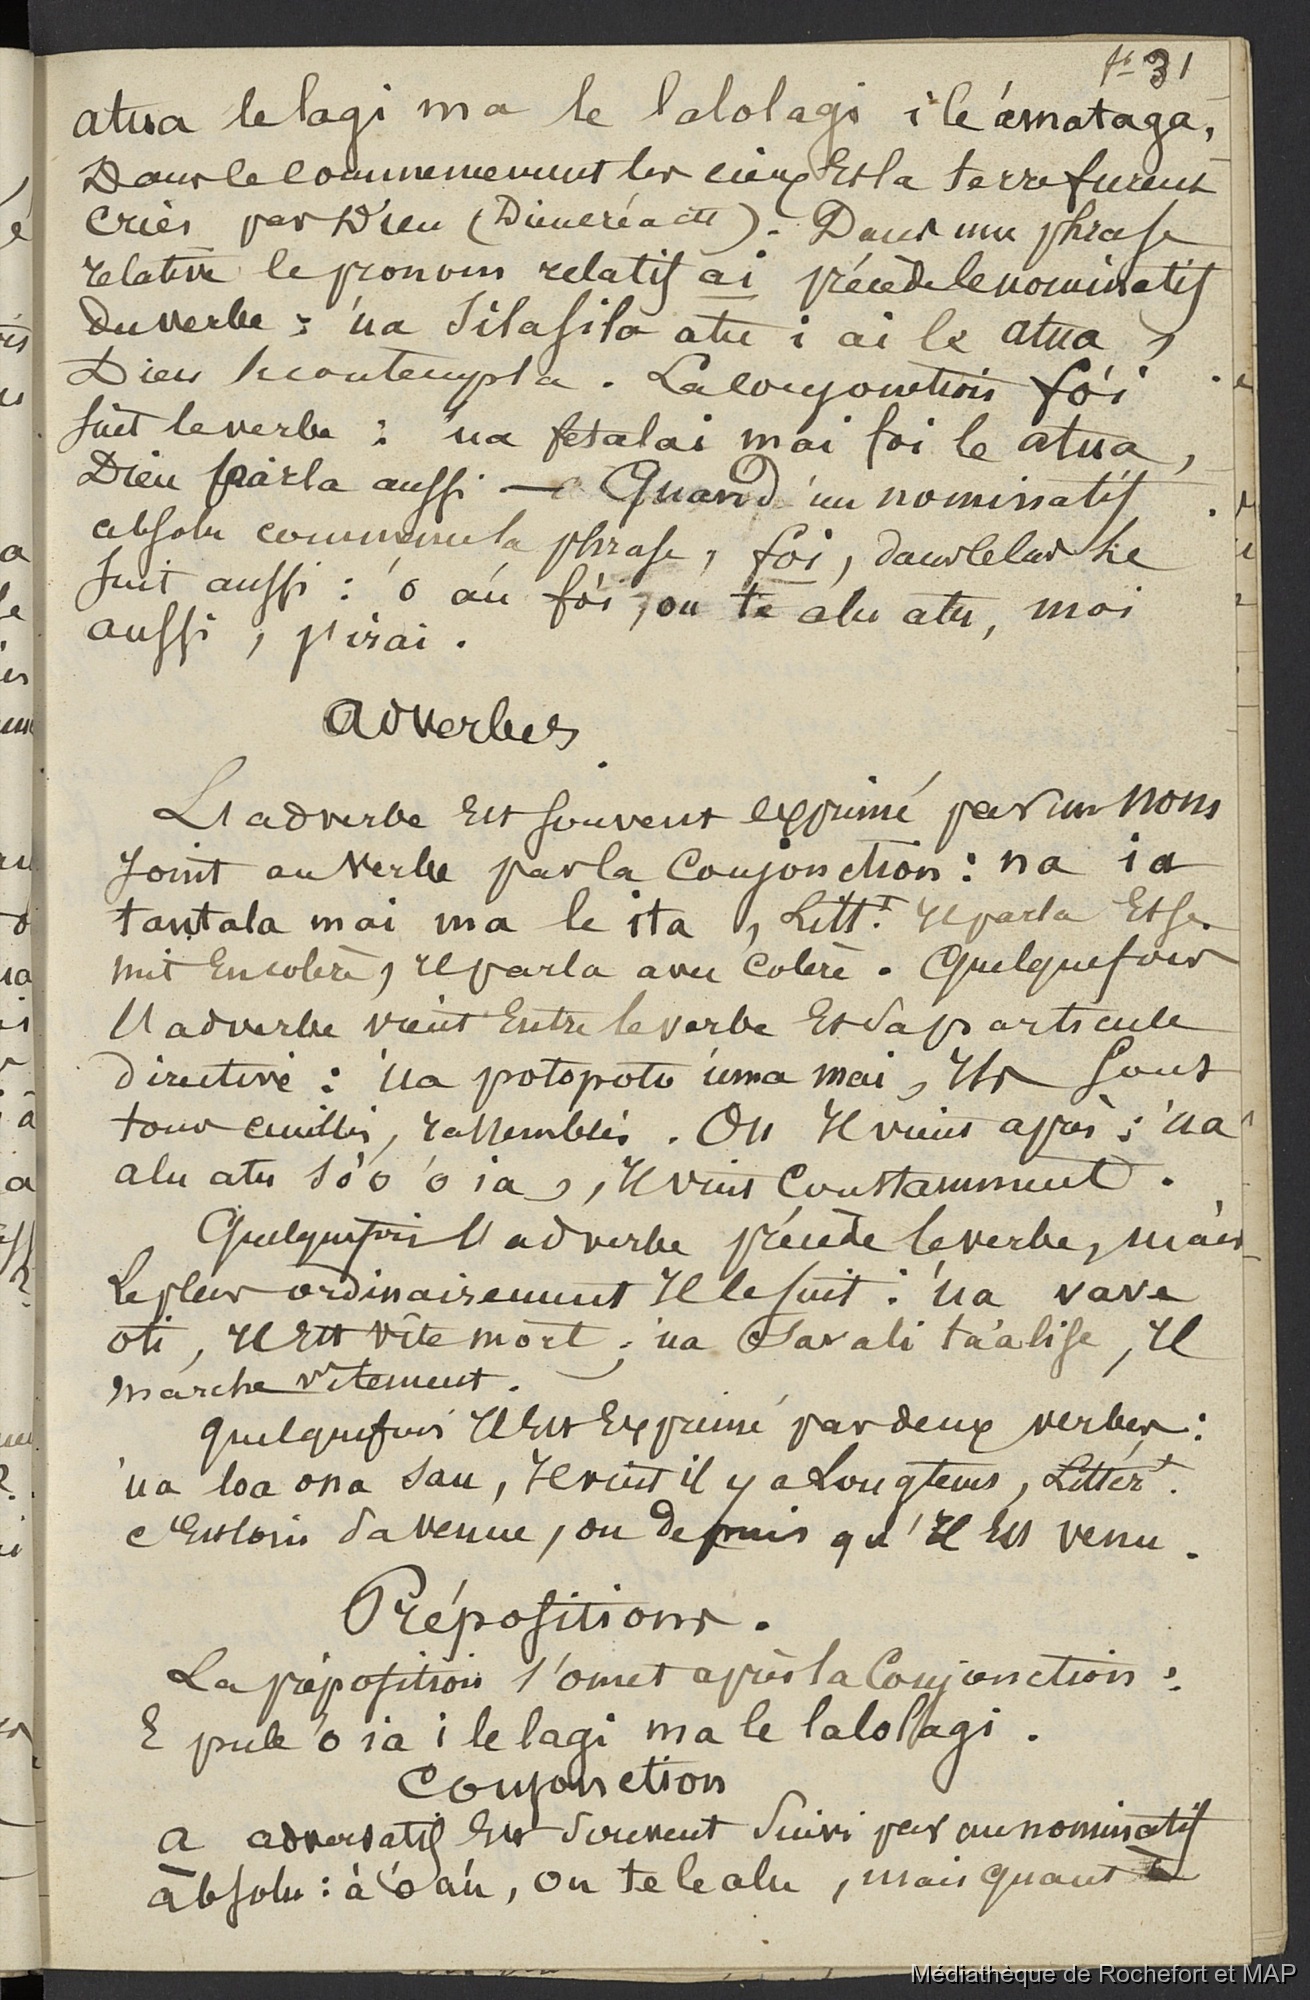 fo 31
atua le lagi ma le lalolagi i le ámataga,
Dans le commencement les cieux Et la terre furent
criès par Dieu (Dieu créa etc). Dans une phrase
relative le pronom relatif ai précède le nominatif
du verbe : 'ua silafila atu i ai le atua,
Dieu le contempla. La conjonction fo'i
suit le verbe : 'ua fetalai mai foi le atua,
Dieu parla aussi — Quand un nominatif
absolu commence la phrase, foi, dans le cas le
suit aussi : 'o áu fo'i, ou te alu atu, moi
aussi, j'irai.
Adverbes
L'adverbe Est souvent exprimé par un nom
joint au verbe par la Conjonction : na ia
tautala mai ma le ita, Litt.t Il parla Et se
mit En colère, Il parla avec colère. Quelquefois
l'adverbe vient Entre le verbe Et sa particule
directive : 'ua potopoto uma mai, Ils sont
tous cueillis, rassemblés. Ou Il vient après : 'ua
alu atu so'o 'o ia, Il vint Constamment.
Quelquefois l'adverbe précède le verbe, mais
Le plus ordinairement Il le suit : 'ua vave
oti, Il Est vite mort ; 'ua savali ta'alise, Il
marche vitement.
Quelquefois Il Est Exprimé par deux verbes :
'ua loa ona sau, Il vint il y a Longtems, Littér.t
c'Est loin sa venue, ou depuis qu'Il Est venu.
Prépositions.
La préposition s'omet après la Conjonction :
E pule 'o ia i le lagi ma le lalolagi.
Conjonction
a adversatif Est souvent suivi par un nominatif
absolu : à 'o áu, ou te le alu, mais quant à
Médiathèque de Rochefort et MAP